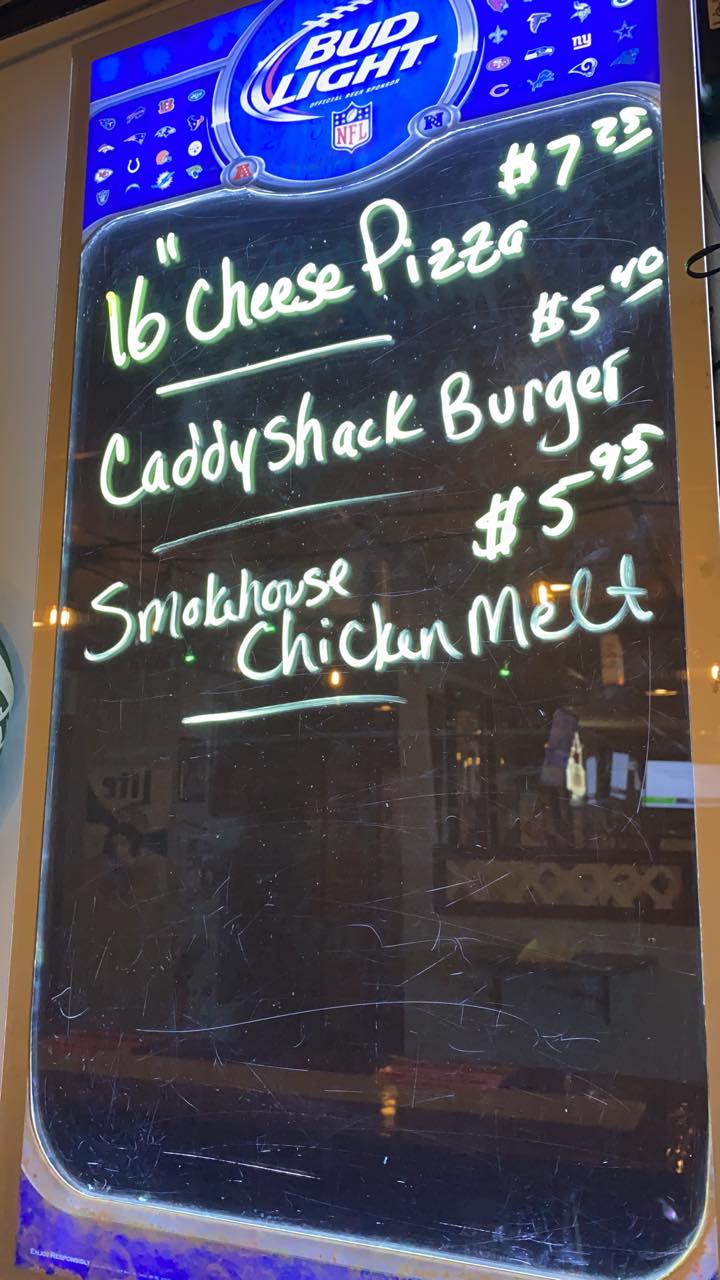 BUD
LIGHT
OFFICIAL BEER SPONSOR
NFL
ny
A
N
$7 25
16" Cheese Pizza
$5 40
Caddyshack Burger
$5 95
Smokehouse
Chicken Melt
ENJOY RESPONSIBLY